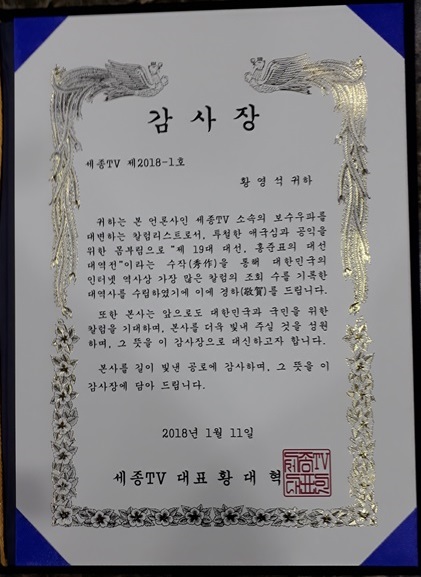 감사장
세종TV 제2018-1호
황영석 귀하
귀하는 본 언론사인 세종TV 소속의 보수우파를
대변하는 칼럼리스트로서, 투철한 애국심과 공익을
위한 몸부림으로 "제 19대 대선, 홍준표의 대선
대역전"이라는 수작(秀作)을 통해 대한민국의
인터넷 역사상 가장 많은 칼럼의 조회 수를 기록한
대역사를 수립하였기에 이에 경하(敬賀)를 드립니다.
또한 본사는 앞으로도 대한민국과 국민을 위한
칼럼을 기대하며, 본사를 더욱 빛내 주실 것을 성원
하며, 그 뜻을 이 감사장으로 대신하고자 합니다.
본사를 길이 빛낸 공로에 감사하며, 그 뜻을 이
감사장에 담아 드립니다.
2018년 1월 11일
세종TV 대표 황대혁